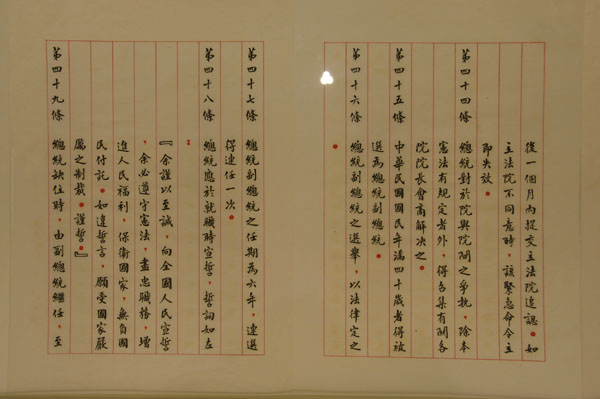 後一個月內提交立法院追認。如
立法院不同意時,該緊急命令立
即失效。
第四十四條 總統對於院與院間之爭執,除本
憲法有規定者外,得召集有關各
院院長會商解決之。
第四十五條 中華民國國民年滿四十歲者得被
選為總統副總統。
第四十六條 總統副總統之選舉,以法律定之
。
第四十七條 總統副總統之任期為六年,連選
得連任一次。
第四十八條 總統應於就職時宣誓,誓詞如左
:
『余謹以至誠,向全國人民宣誓
,余必遵守憲法,盡忠職務,增
進人民福利,保衛國家,無負國
民付託。如違誓言,願受國家嚴
厲之制裁。謹誓。』
第四十九條 總統缺位時,由副總統繼任,至